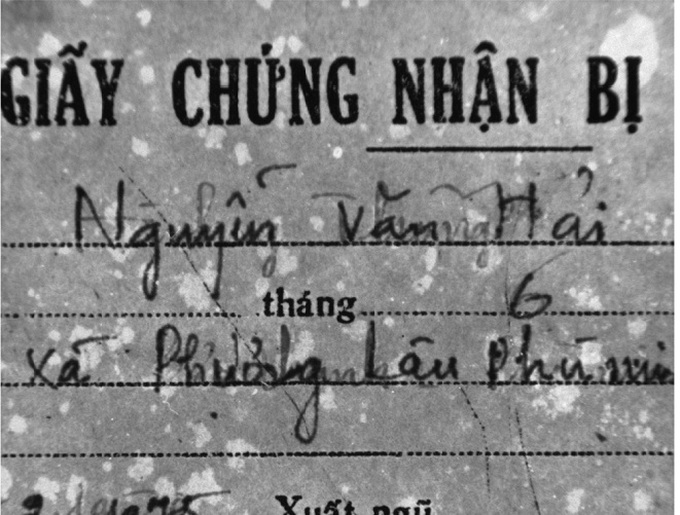 GIẤY CHỨNG NHẬN BỊ
Nguyễn Văn Hải
tháng 6
xã Phượng Lâu Phù
Xuất ngũ